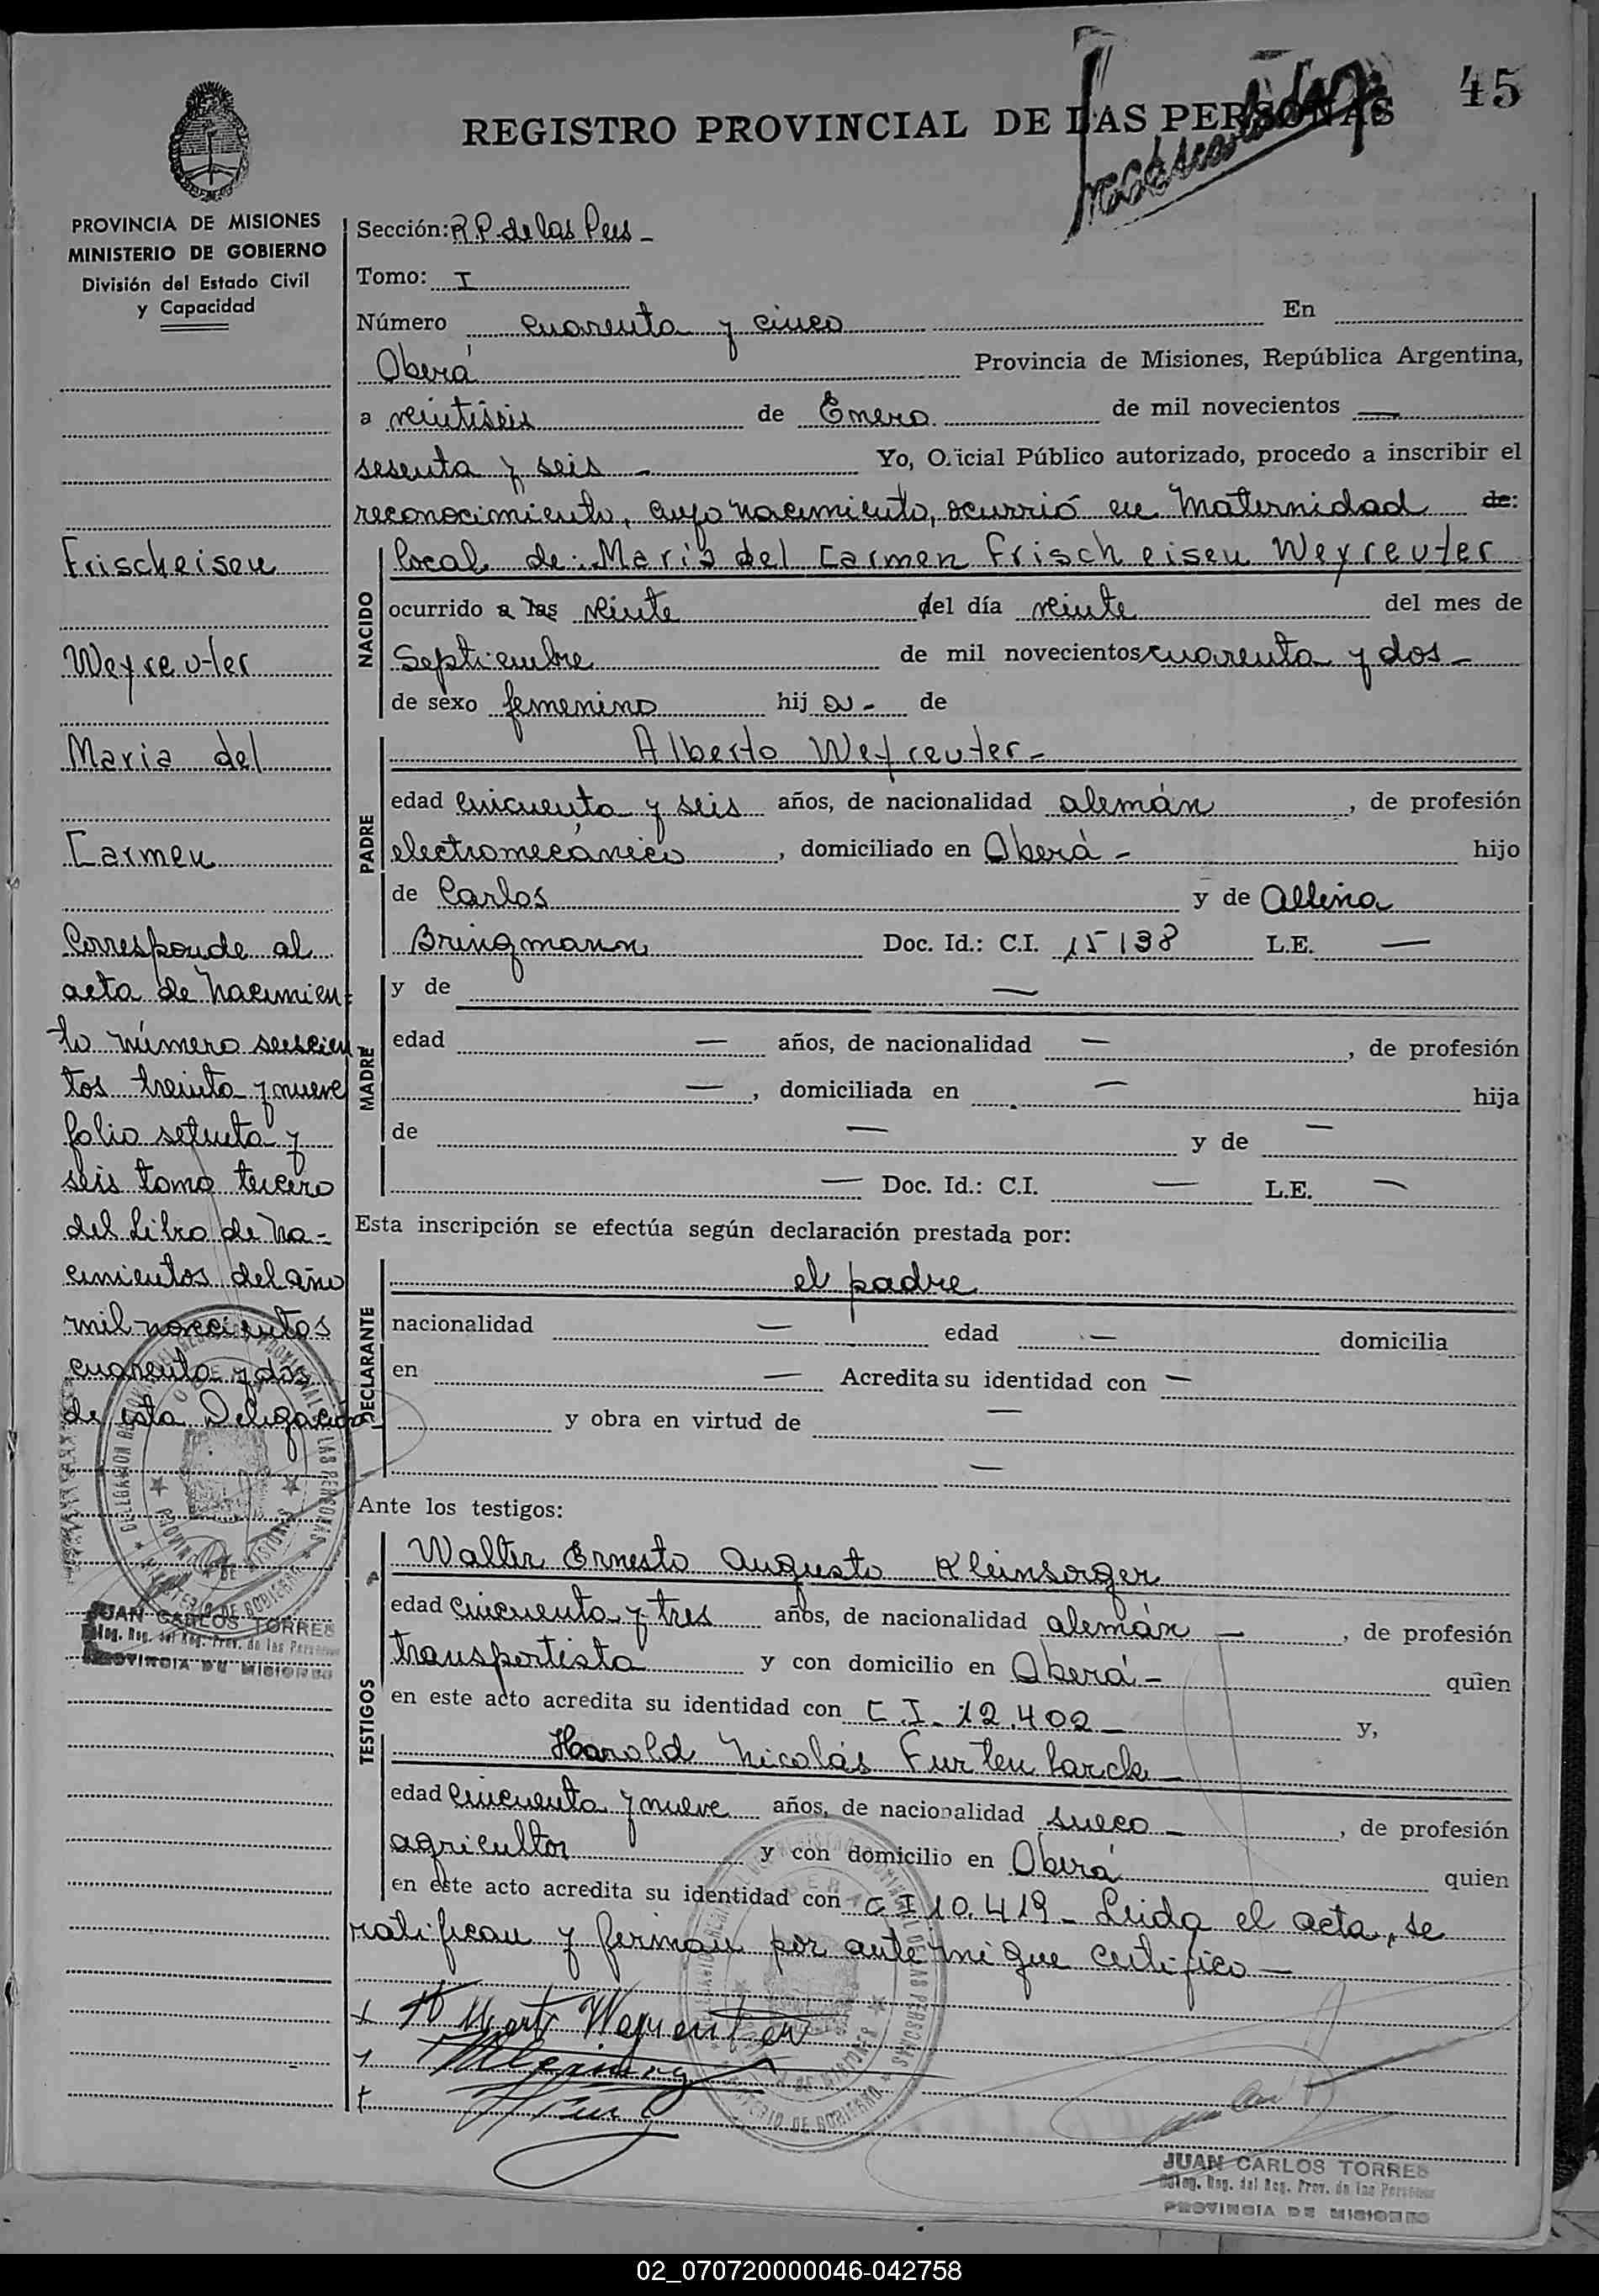 45
REGISTRO PROVINCIAL DE LAS PERSONAS
PROVINCIA DE MISIONES
MINISTERIO DE GOBIERNO
División del Estado Civil
y Capacidad
Frischeisen
Weyreuter
Maria del
Carmen
Corresponde al
acta de nacimien-
to número seiscien
tos treinta y nueve
folio setenta y
seis tomo tercero
del Libro de Na-
cimientos del año
mil novecientos
cuarenta y dos
de esta Delegación
JUAN CARLOS TORRES
Deleg. Reg. del Reg. Prov. de las Personas
PROVINCIA DE MISIONES
Sección: R.P. de las Pers -
Tomo: I
Número cuarenta y cinco En
Oberá Provincia de Misiones, República Argentina,
a veintiseis de Enero de mil novecientos —
sesenta y seis - Yo, Oficial Público autorizado, procedo a inscribir el
reconocimiento, cuyo nacimiento, ocurrió en Maternidad de:
NACIDO
local de: Maria del Carmen Frischeisen Weyreuter
ocurrido a las veinte del día veinte del mes de
Septiembre de mil novecientos cuarenta y dos -
de sexo femenino hij a - de
PADRE
Alberto Weyreuter -
edad cincuenta y seis años, de nacionalidad alemán, de profesión
electromecánico, domiciliado en Oberá - hijo
de Carlos y de
Bringmann Doc. Id.: C.I. 15138 L.E. —
MADRE
y de —
edad — años, de nacionalidad —, de profesión
—, domiciliada en — hija
de — y de —
— Doc. Id.: C.I. — L.E. —
Esta inscripción se efectúa según declaración prestada por:
DECLARANTE
el padre
nacionalidad — edad — domicilia
en — Acredita su identidad con —
y obra en virtud de —
—
Ante los testigos:
TESTIGOS
Walter Ernesto Augusto Kleinsorger
edad cincuenta y tres años, de nacionalidad alemán —, de profesión
transportista y con domicilio en Oberá - quien
en este acto acredita su identidad con C.I. 12.402 - y,
Harold Nicolás Furtenbarck -
edad cincuenta y nueve años, de nacionalidad sueco -, de profesión
agricultor y con domicilio en Oberá quien
en este acto acredita su identidad con C I 10.419 - Leida el acta, se
ratifican y firman por ante mi que certifico —
JUAN CARLOS TORRES
Deleg. Reg. del Reg. Prov. de las Personas
PROVINCIA DE MISIONES
02_070720000046-042758